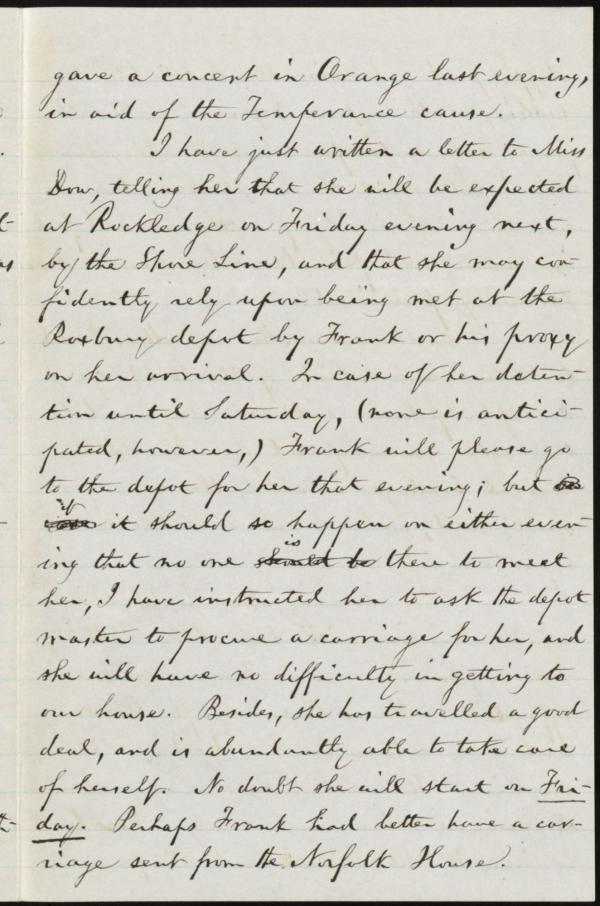 gave a concert in Orange last evening,
in aid of the Temperance cause.
I have just written a letter to Miss
Dow, telling her that she will be expected
at Rockledge on Friday evening next,
by the Shore Line, and that she may con-
fidently rely upon being met at the
Roxbury depot by Frank or his proxy
on her arrival. In case of her deten-
tion until Saturday, (none is antici-
pated, however,) Frank will please go
to the depot for her that evening; but
if it should so happen on either even-
ing that no one is should be there to meet
her, I have instructed her to ask the depot
master to procure a carriage for her, and
she will have no difficulty in getting to
our house. Besides, she has travelled a good
deal, and is abundantly able to take care
of herself. No doubt she will start on Fri-
day. Perhaps Frank had better have a car-
riage sent from the Norfolk House.